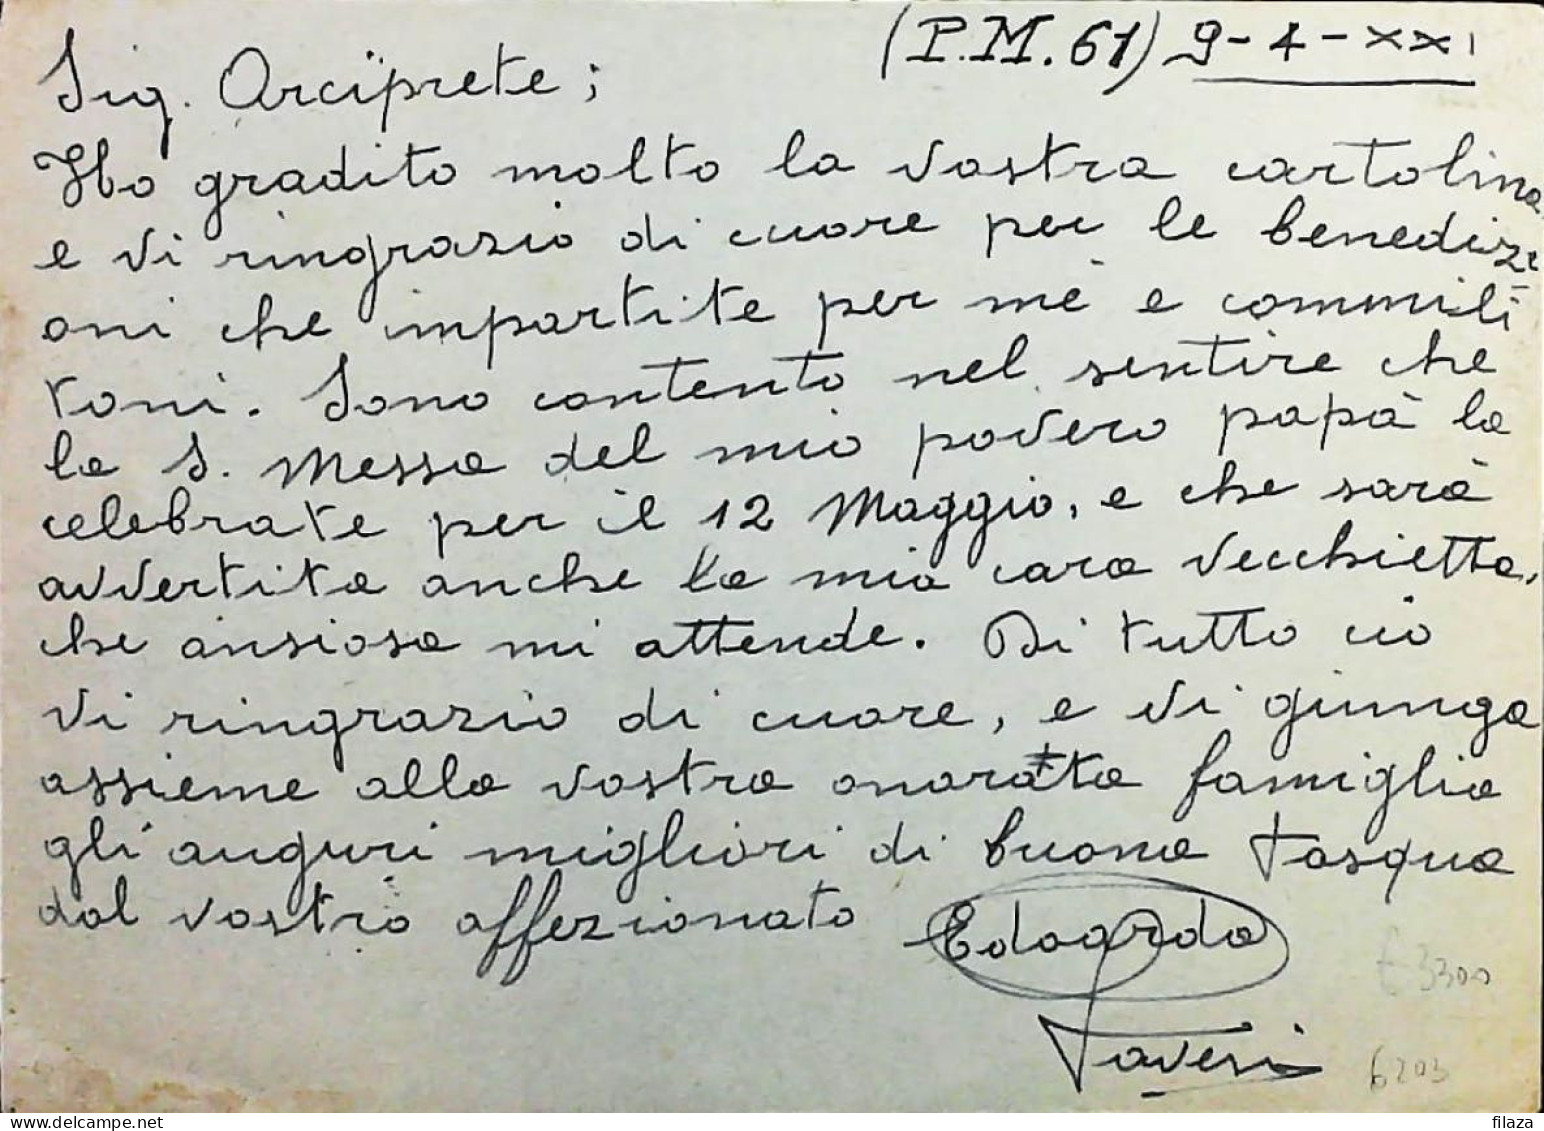 (P.M. 61) 9-4-XXI
Sig. Arciprete;
Ho gradito molto la vostra cartolina
e vi ringrazio di cuore per le benedizi
oni che impartite per mè e commili
toni. Sono contento nel sentire che
la S. Messa del mio povero papà la
celebrate per il 12 Maggio, e che sarà
avvertita anche la mia cara vecchietta,
che ansiosa mi attende. Di tutto ciò
vi ringrazio di cuore, e vi giunga
assieme alla vostra onorata famiglia
gli auguri migliori di buona Pasqua
dal vostro affezionato Edoardo
Taveri
3300
6203
www.delcampe.net
filaza